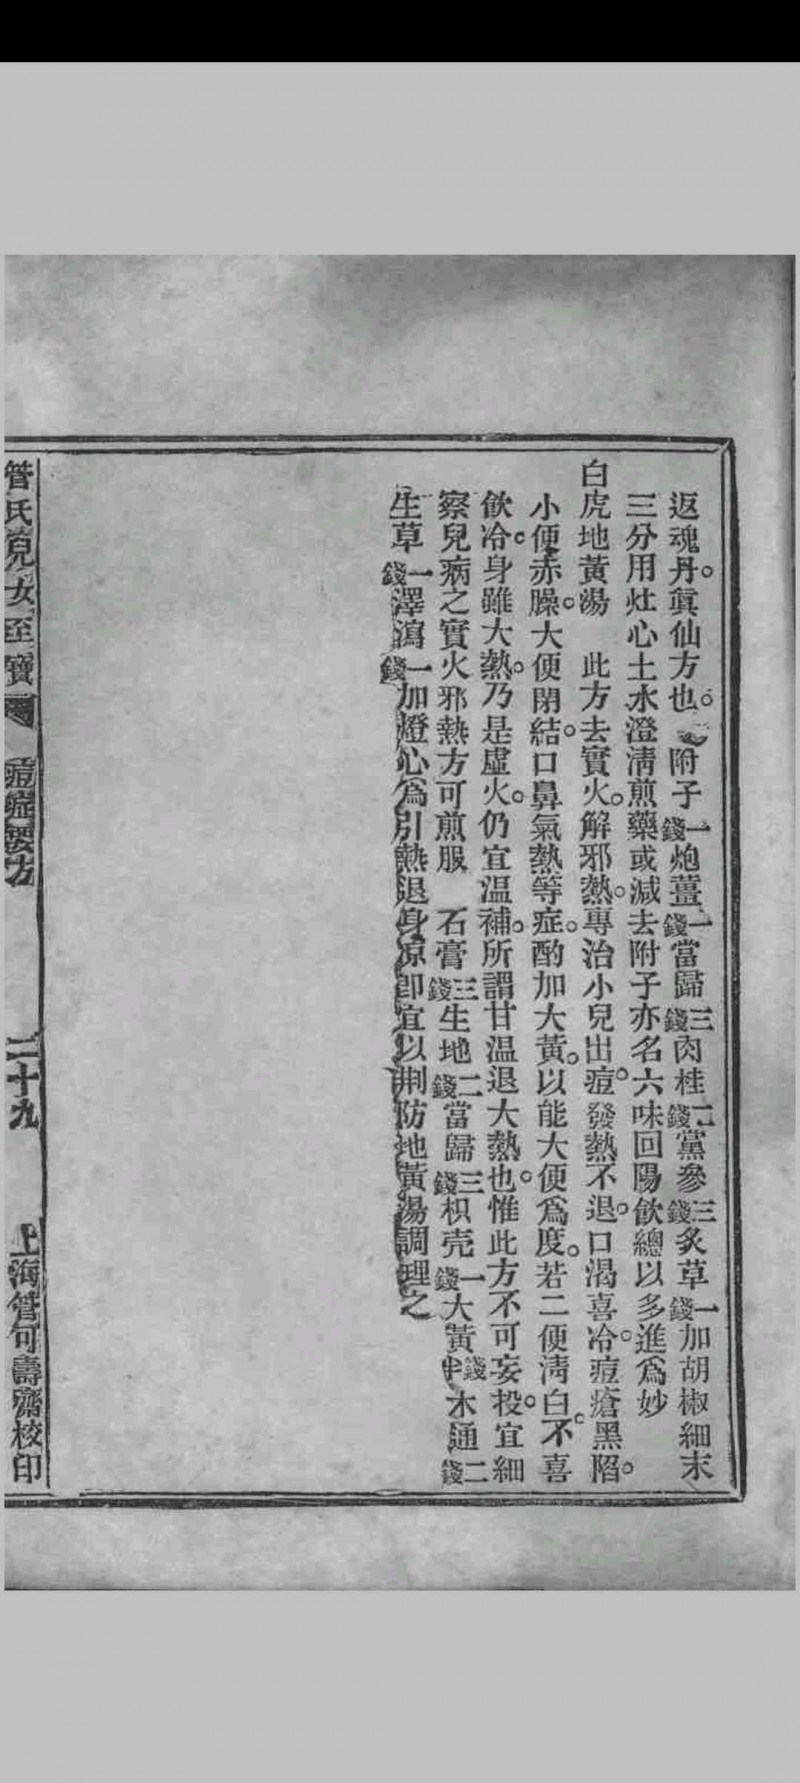 返魂丹。眞仙方也。附子一錢炮薑一錢當歸三錢肉桂二錢黨參三錢炙草一錢加胡椒細末
三分用灶心土水澄清煎藥或減去附子亦名六味回陽飲總以多進爲妙
白虎地黃湯　此方去實火。解邪熱。專治小兒出痘。發熱不退。口渴喜冷。痘瘡黑陷。
小便赤臊。大便閉結。口鼻氣熱等症。酌加大黃。以能大便爲度。若二便淸白。不喜
飲冷。身雖大熱。乃是虛火。仍宜温補。所謂甘温退大熱也。惟此方不可妄投。宜細
察兒病之實火邪熱方可煎服　石膏三錢生地二錢當歸三錢枳壳一錢大黃錢半木通二錢
生草一錢澤瀉一錢加燈心爲引熱退身凉卽宜以荆防地黃湯調理之
管氏兒女至寶　痘症要方　二十九　上海管可壽齋校印